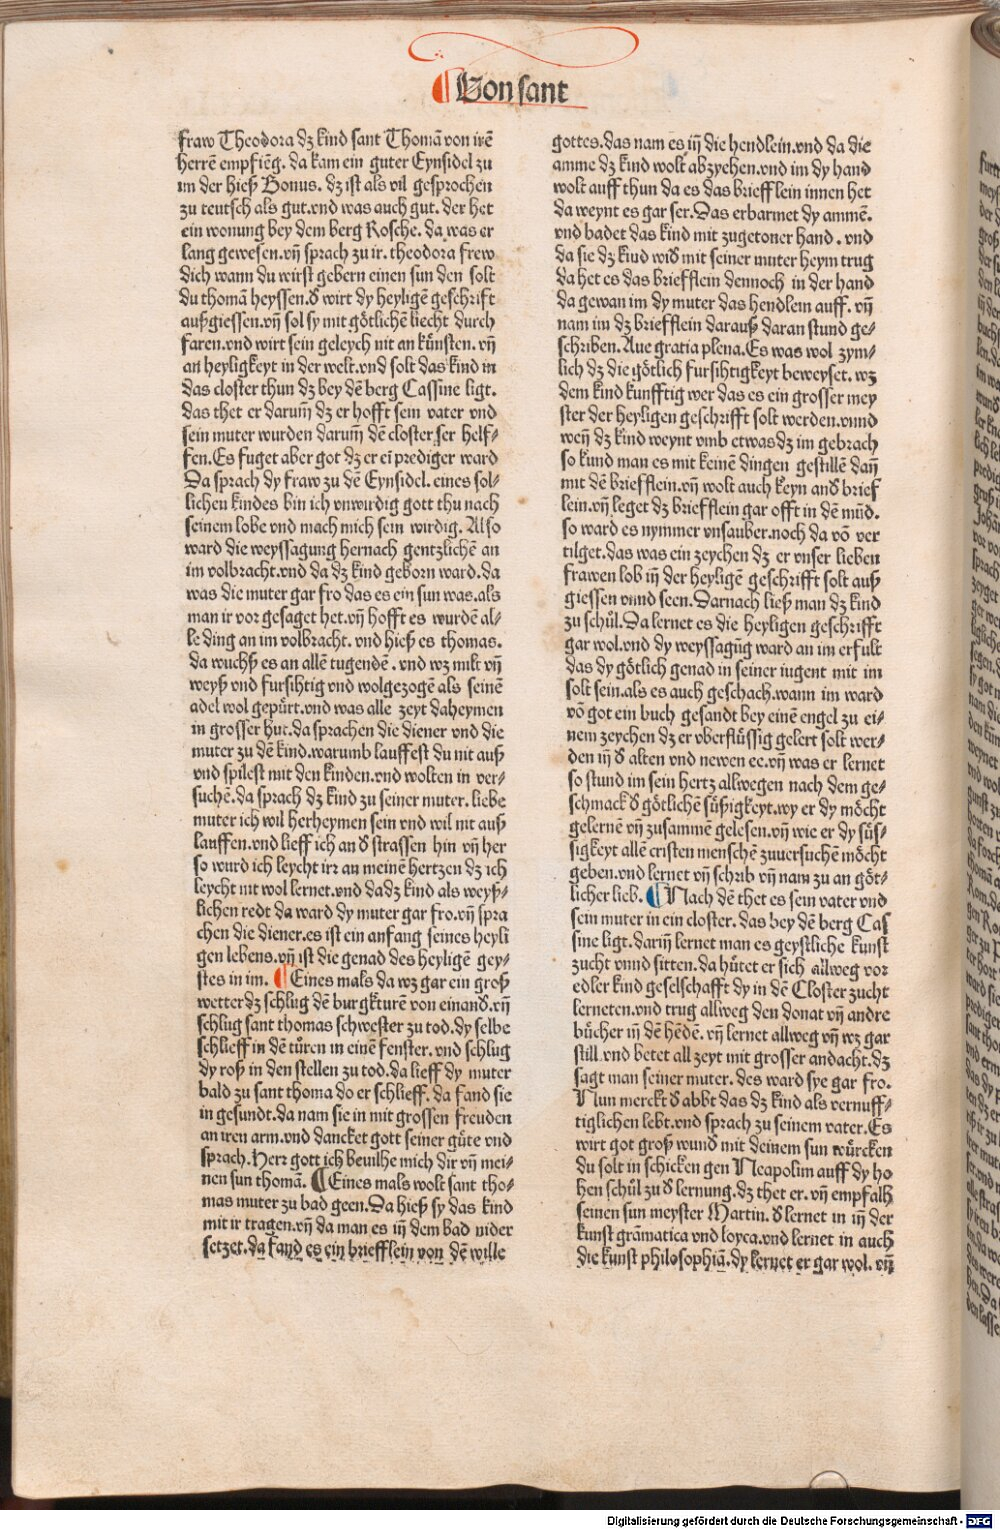 ¶ Von sant
fraw Theodora dz kind sant Thomā von irē
herrē empfiēg. da kam ein guter Eynsidel zu
im der hieß Bonus. dz ist als vil gesprochen
zu teutsch als gut. vnd was auch gut. der het
ein wonung bey dem berg Rosche. da was er
lang gewesen. vñ sprach zu ir. theodora frew
dich wann du wirst gebern einen sun den solt
du thomā heyssen. ď wirt dy heyligē geschrift
außgiessen. vñ sol sy mit götlichē liecht durch
faren. vnd wirt sein geleych nit an künsten. vñ
an heyligkeyt in der welt. vnd solt das kind in
das closter thun dz bey dē berg Cassine ligt.
das thet er darum̄ dz er hofft sein vater vnd
sein muter wurden darum̄ dē closter ser helf⸗
fen. Es fuget aber got dz er ei prediger ward
Da sprach dy fraw zu dē Eynsidel. eines sol⸗
lichen kindes bin ich vnwirdig gott thu nach
seinem lobe vnd mach mich sein wirdig. Also
ward die weyssagung hernach gentzlichē an
im volbracht. vnd da dz kind geborn ward. da
was die muter gar fro das es ein sun was. als
man ir vor gesaget het. vñ hofft es wurdē al⸗
le ding an im volbracht. vnd hieß es thomas.
da wuchß es an allē tugendē. vnd wz milt vñ
weyß vnd fursihtig vnd wolgezogē als seinē
adel wol gepürt. vnd was alle zeyt daheymen
in grosser hut. da sprachen die diener vnd die
muter zu dē kind. warumb lauffest du nit auß
vnd spilest mit den kinden. vnd wolten in ver⸗
suchē. da sprach dz kind zu seiner muter. liebe
muter ich wil herheymen sein vnd wil nit auß
lauffen. vnd lieff ich an ď strassen hin vñ her
so wurd ich leycht irr an meinē hertzen dz ich
leycht nit wol lernet. vnd da dz kind als weyß⸗
lichen redt da ward dy muter gar fro. vñ spra
chen die diener. es ist ein anfang seines heyli
gen lebens. vñ ist die genad des heyligē gey⸗
stes in im. ¶ Eines mals da wz gar ein groß
wetter dz schlug dē burgkturē von einanď. vñ
schlug sant thomas schwester zu tod. dy selbe
schlieff in dē türen in einē fenster. vnd schlug
dy roß in den stellen zu tod. da lieff dy muter
bald zu sant thoma do er schlieff. da fand sie
in gesundt. da nam sie in mit grossen freuden
an iren arm. vnd dancket gott seiner güte vnd
sprach. Herr gott ich beuilhe mich dir vñ mei⸗
nen sun thomā. ¶ Eines mals wolt sant tho⸗
mas muter zu bad geen. Da hieß sy das kind
mit ir tragen. vñ da man es iñ dem bad nider
setzet. da fand es ein briefflein von dē wille
gottes. das nam es iñ die hendlein. vnd da die
amme dz kind wolt abzyehen. vnd im dy hand
wolt auff thun da es das briefflein innen het
da weynt es gar ser. Das erbarmet dy ammē.
vnd badet das kind mit zugetoner hand. vnd
da sie dz kiud widˀ mit seiner muter heym trug
da het es das briefflein dennoch in der hand
da gewan im dy muter das hendlein auff. vñ
nam im dz briefflein darauß daran stund ge⸗
schriben. Aue gratia plena. Es was wol zym⸗
lich dz die götlich fursihtigkeyt beweyset. wz
dem kind kunfftig wer das es ein grosser mey
ster der heyligen geschrifft solt werden. vnnd
weñ dz kind weynt vmb etwas dz im gebrach
so kund man es mit keinē dingen gestillē dañ
mit dē briefflein. vñ wolt auch keyn anď brief
lein. vñ leget dz briefflein gar offt in dē mūd.
so ward es nymmer vnsauber. noch da vō ver
tilget. das was ein zeychen dz er vnser lieben
frawen lob iñ der heyligē geschrifft solt auß
giessen vnnd seen. Darnach ließ man dz kind
zu schůl. Da lernet es die heyligen geschrifft
gar wol. vnd dy weyssagūg ward an im erfult
das dy götlich genad in seiner iugent mit im
solt sein. als es auch geschach. wann im ward
vō got ein buch gesandt bey einē engel zu ei⸗
nem zeychen dz er vberflüssig gelert solt wer⸗
den iñ ď alten vnd newen ee. vñ was er lernet
so stund im sein hertz allwegen nach dem ge⸗
schmack ď götlichē süßigkeyt. wy er dy möcht
gelernē vñ zusammē gelesen. vñ wie er dy süs⸗
sigkeyt allē cristen menschē zuuersuchē möcht
geben. vnd lernet vñ schrib vñ nam zu an göt⸗
licher lieb. ¶ Nach dē thet es sein vater vnd
sein muter in ein closter. das bey dē berg Cas
sine ligt. dariñ lernet man es geystliche kunst
zucht vnnd sitten. da hütet er sich allweg vor
edler kind geselschafft dy in dē Closter zucht
lerneten. vnd trug allweg den donat vñ andre
bücher iñ dē hēdē. vñ lernet allweg vñ wz gar
still. vnd betet all zeyt mit grosser andacht. dz
sagt man seiner muter. des ward sye gar fro.
Nun merckt ď abbt das dz kind als vernuff⸗
tiglichen lebt. vnd sprach zu seinem vater. Es
wirt got groß wunď mit deinem sun würcken
du solt in schicken gen Neapolim auff dy ho
hen schůl zu ď lernung. dz thet er. vñ empfalh
seinen sun meyster Martin. ď lernet in iñ der
kunst grāmatica vnd loyca. vnd lernet in auch
die kunst philosophiā. dy lernet er gar wol. vñ
Digitalisierung gefördert durch die Deutsche Forschungsgemeinschaft - DFG